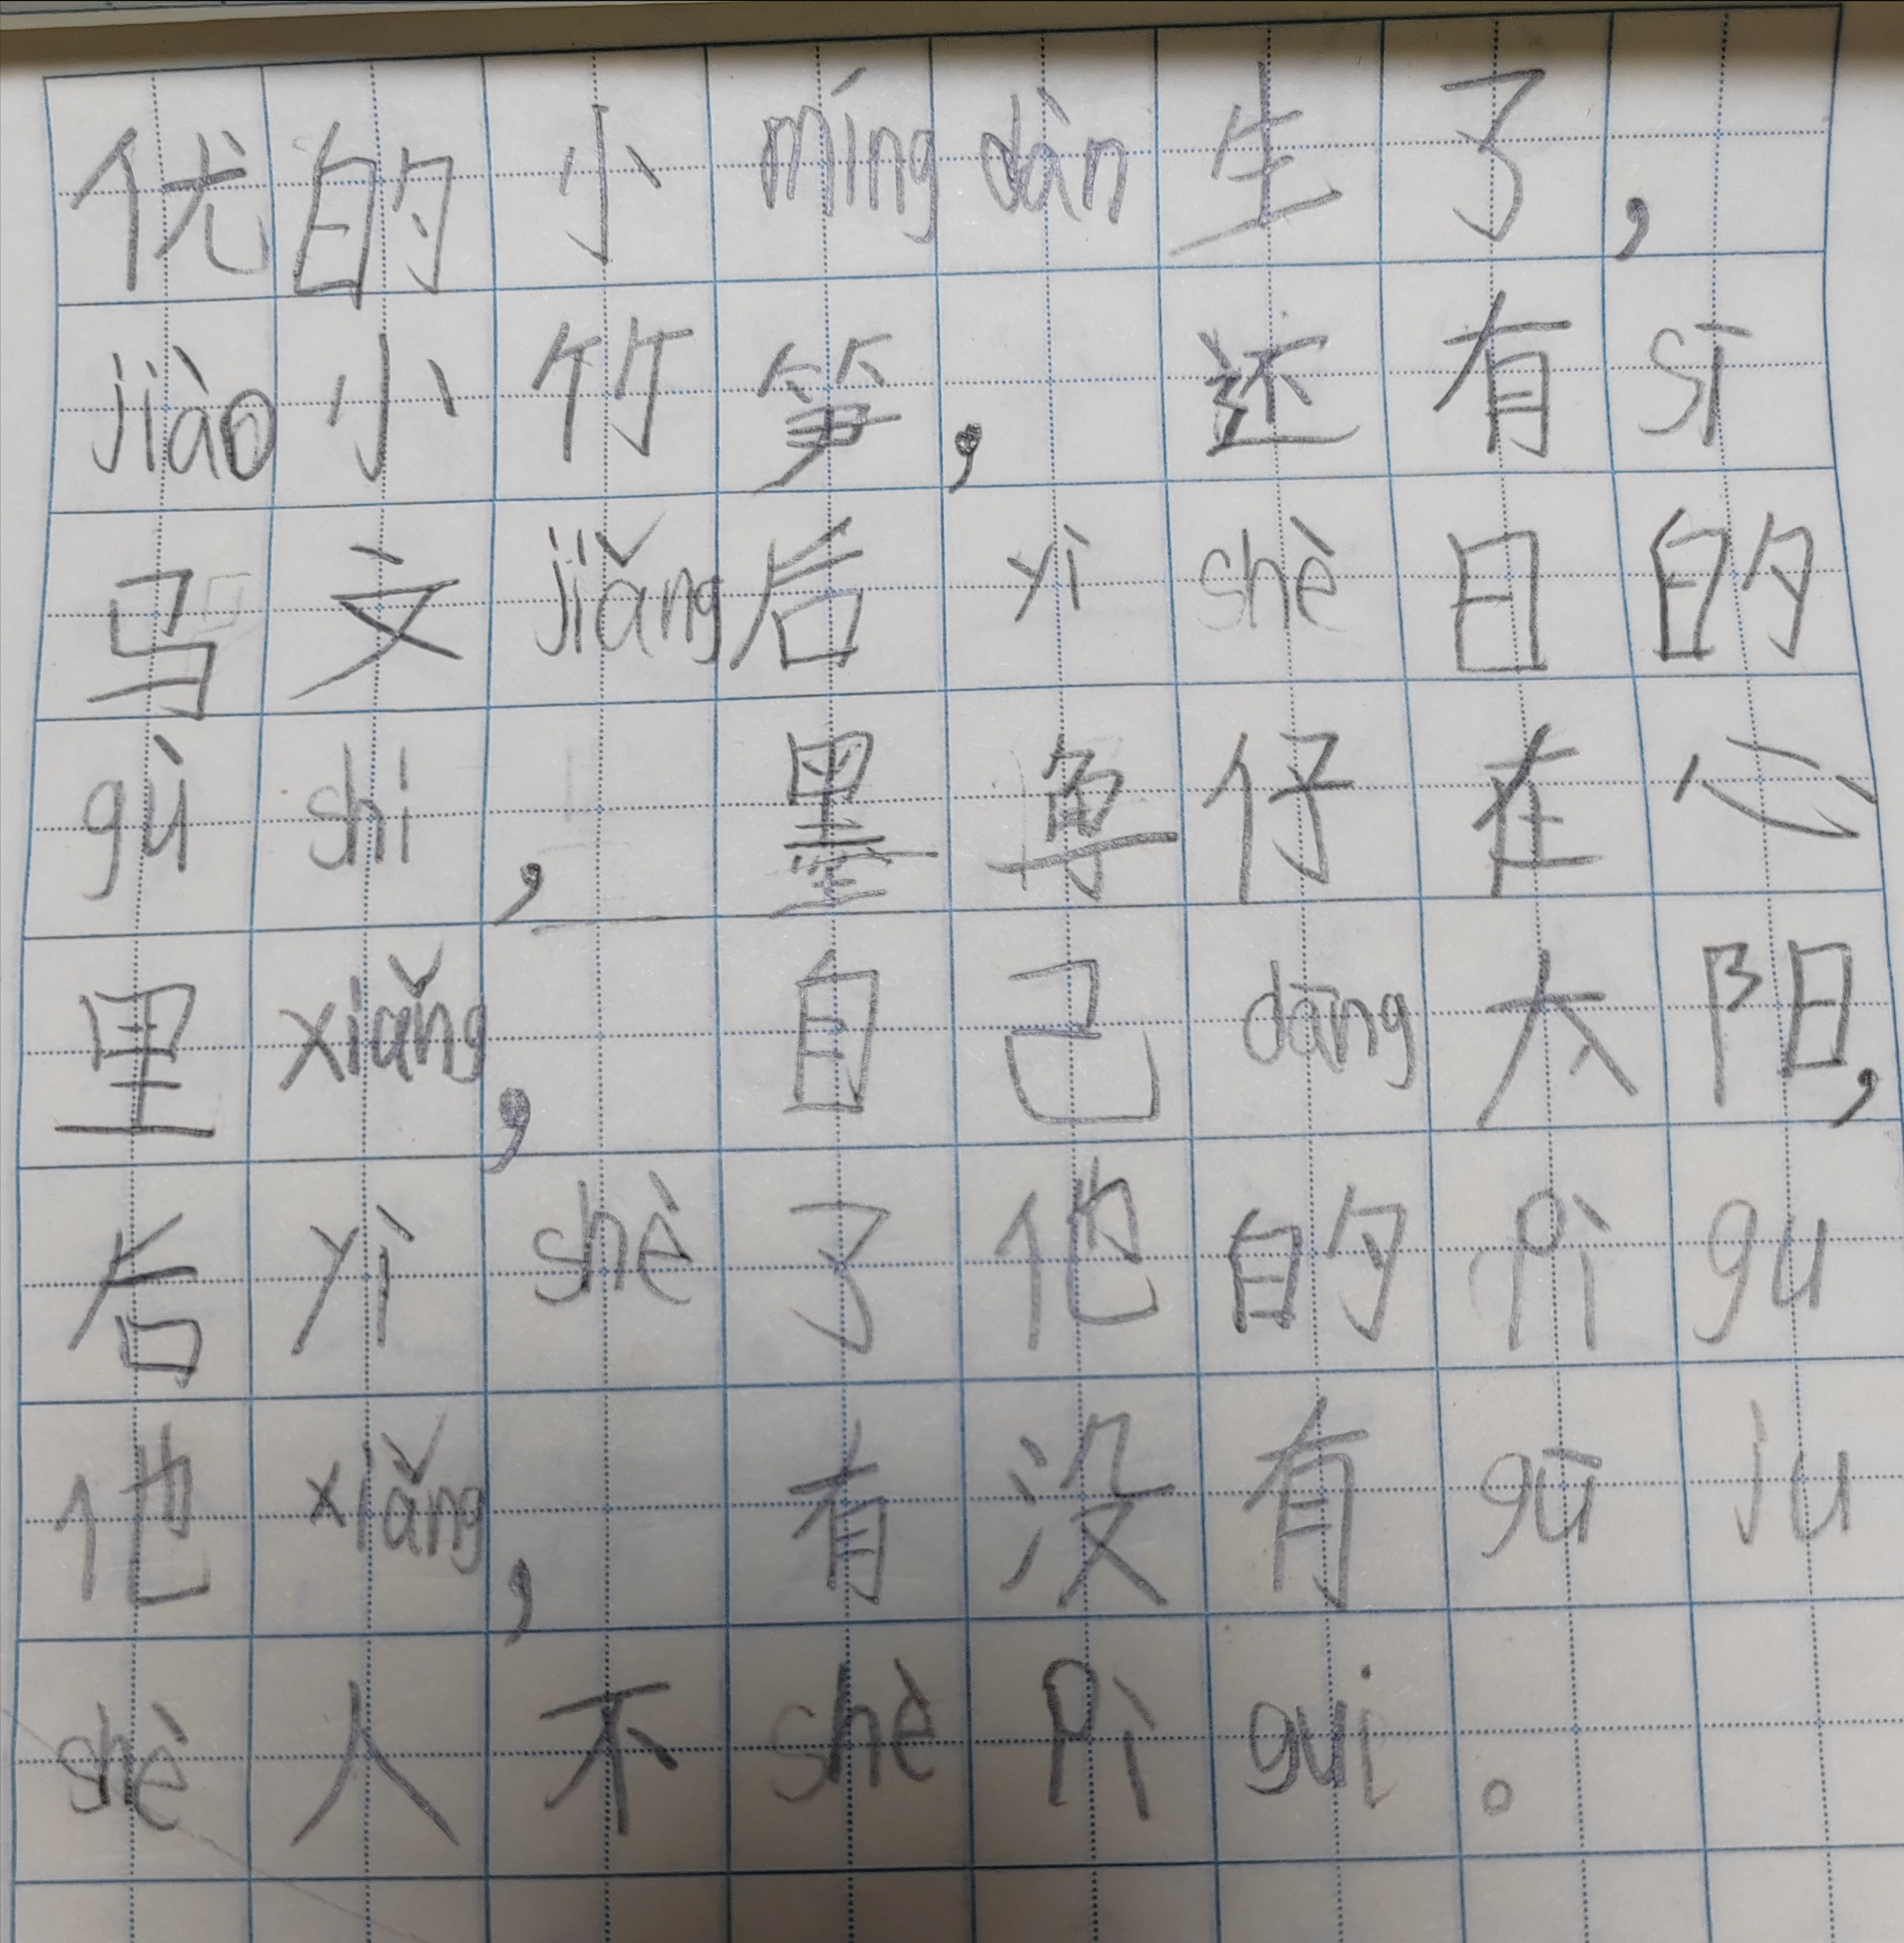 优的小míng dàn生了,
jiào小竹笋,还有sī
马文jiǎng后yì shè日的
gù shi,墨鱼仔在心
里xiǎng,自己dāng太阳,
后yì shè了他的Pì gu
他xiǎng,有没有gū ju
shè人不shè Pì gui。